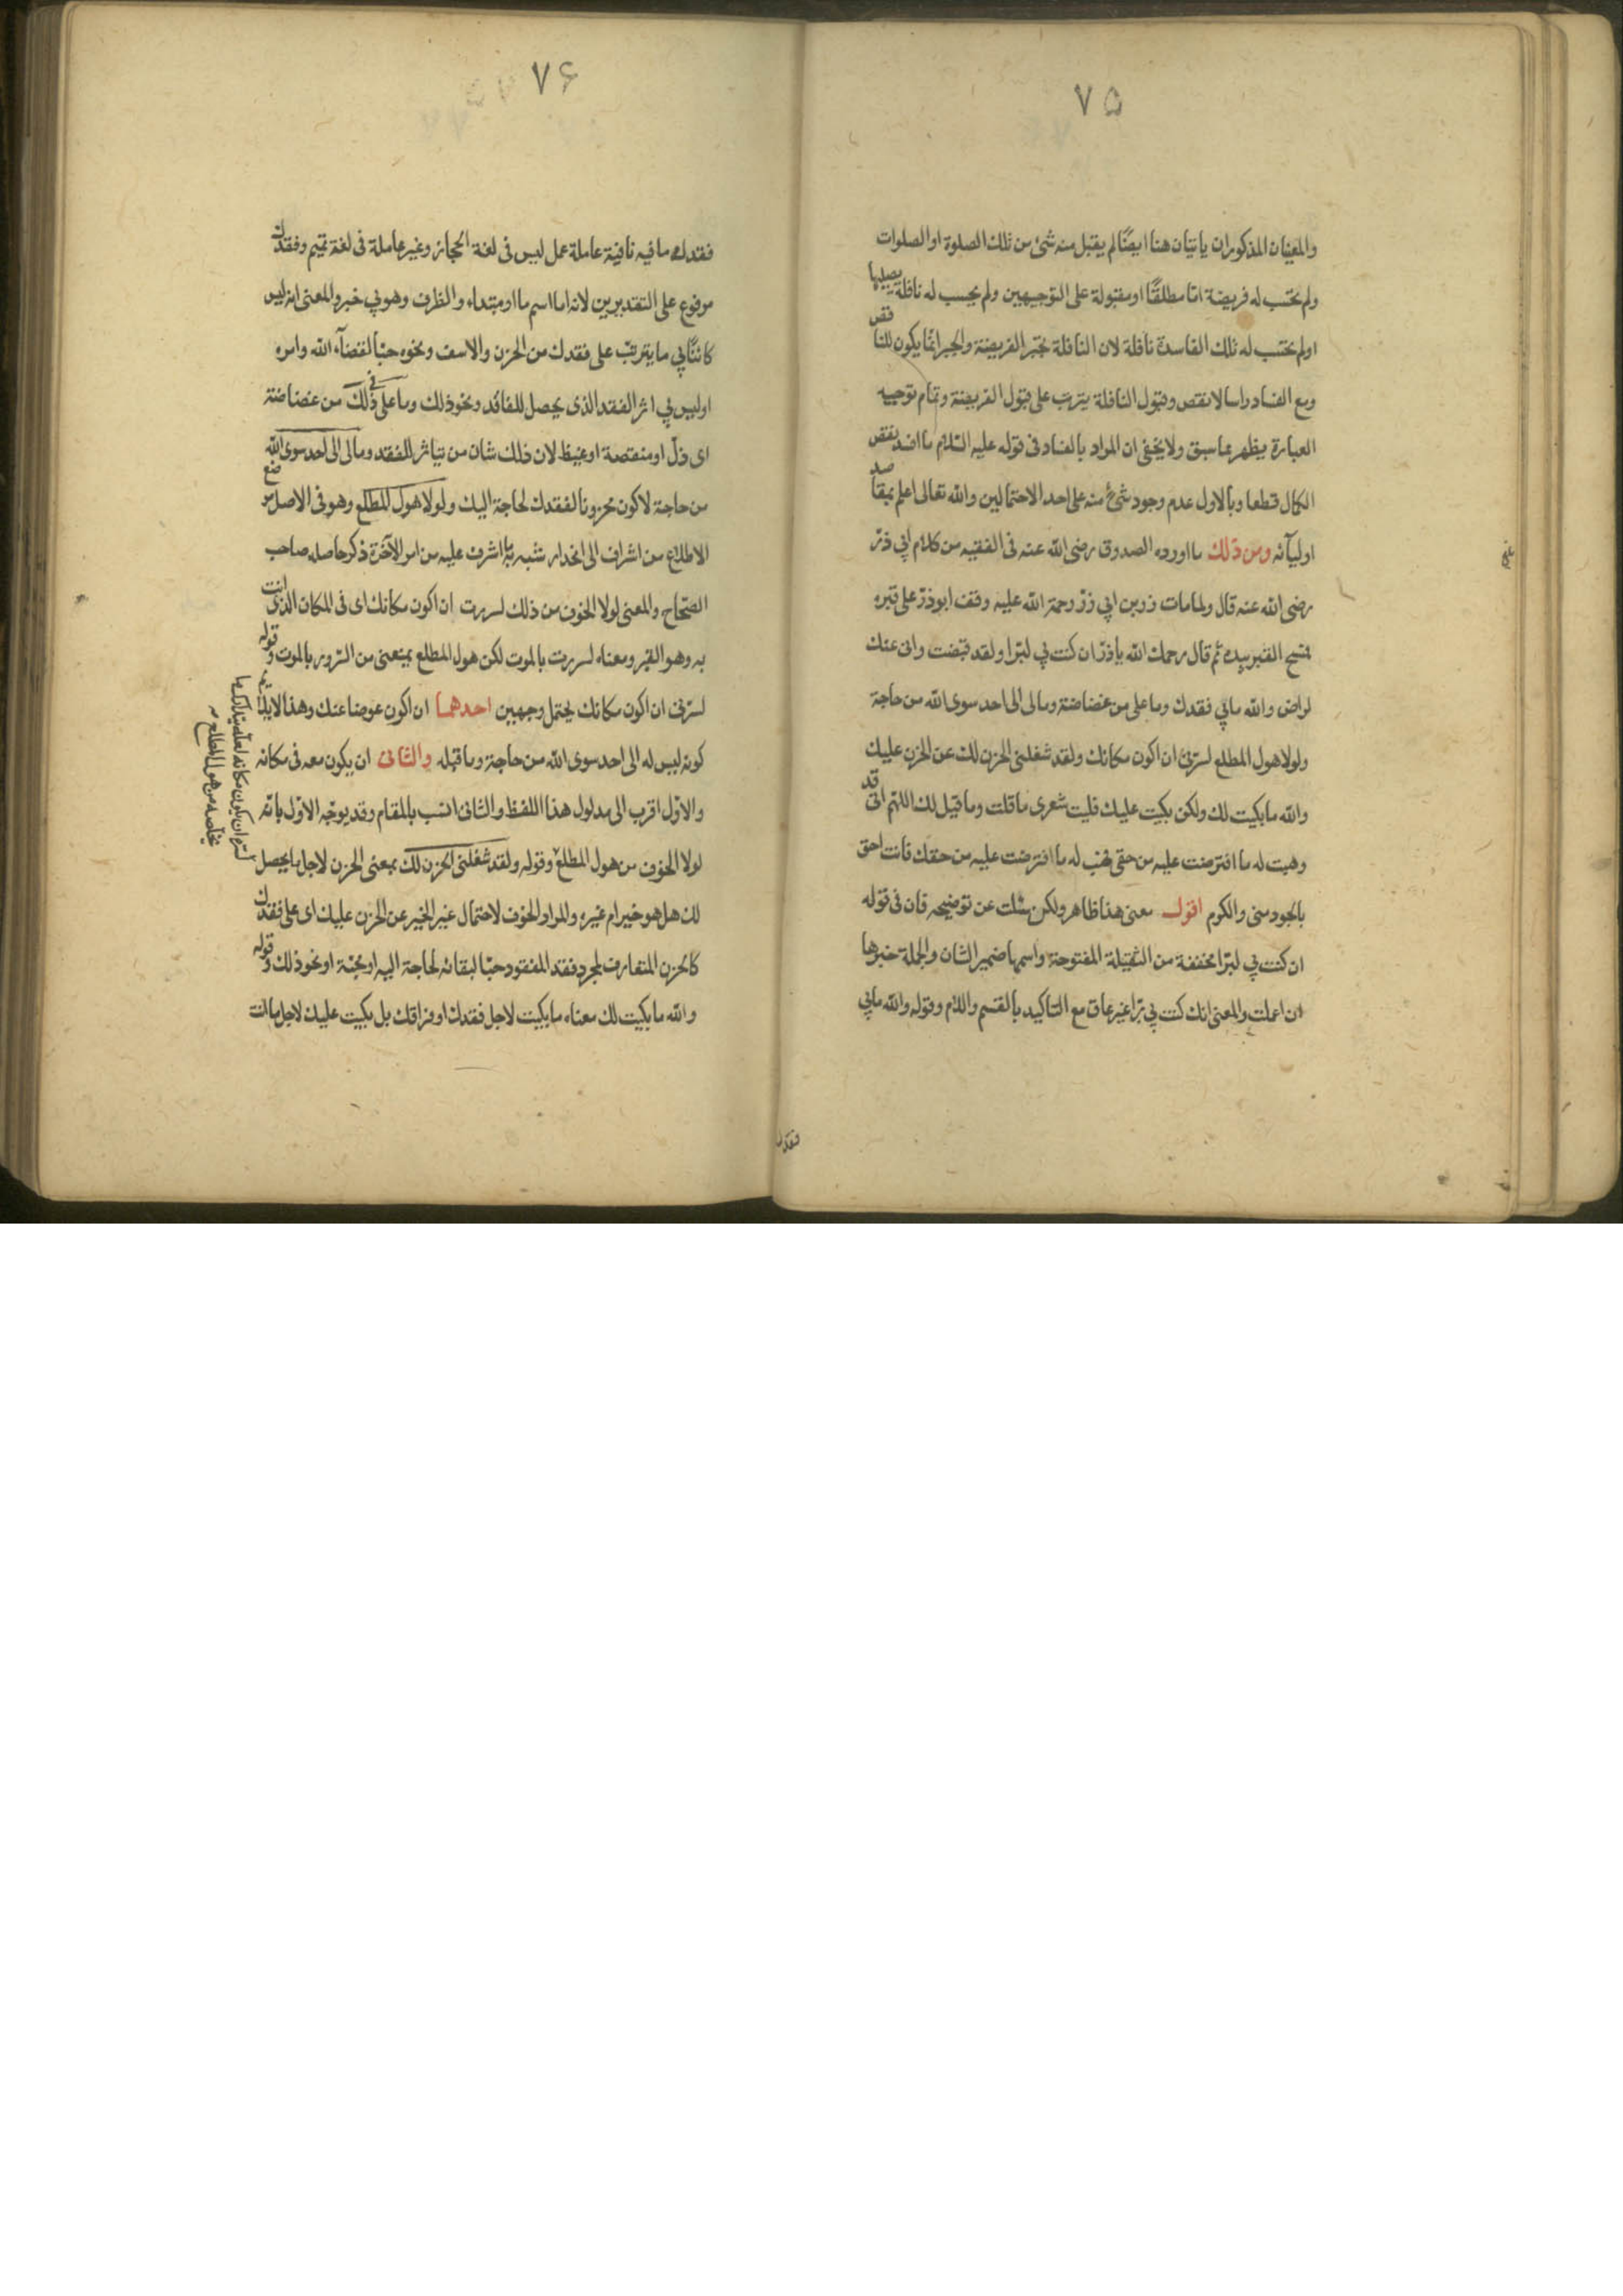 ٧۵
والمعنيان المذكوران ياتيان هنا ايضًا لم يقبل منه شئ من تلك الصلوة او الصلوات
ولم يحتسب له فريضة اما مطلقًا او مقبولة على التوجيهين ولم يحسب له نافلة يصليها
او لم يحتسب له تلك الفاسدة نافلة لان النافلة تجبر الفريضة والجبر انما يكون للناقص
ومع الفساد راسا لا نقص وقبول النافلة يترتب على قبول الفريضة وتمام توجيه
العبارة يظهر مما سبق ولا يخفى ان المراد بالفساد فى قوله عليه السلام ما افسد نقص
الكمال قطعا وبالاول عدم وجود شئ منه على احد الاحتمالين والله تعالى اعلم بمقاصد
اوليآئه ومن ذلك ما اورده الصدوق رضى الله عنه فى الفقيه من كلام ابي ذر
رضى الله عنه قال ولما مات ذر بن ابي ذر رحمة الله عليه وقف ابو ذر على قبره
فمسح القبر بيده ثم قال رحمك الله يا ذر ان كنت بي لبرّا ولقد قبضت وانى عنك
لراض والله مابي فقدك وما على من غضاضة ومالى الى احد سوى الله من حاجة
ولولا هول المطلع لسرّنى ان اكون مكانك ولقد شغلنى الحزن لك عن الحزن عليك
والله ما بكيت لك ولكن بكيت عليك فليت شعرى ما قلت وما قيل لك اللهم انى قد
وهبت له ما افترضت عليه من حقى فهب له ما افترضت عليه من حقك فانت احق
بالجود منى والكرم اقول معنى هذا ظاهر ولكن سئلت عن توضيحه فان فى قوله
ان كنت بي لبرّا مخففة من الثقيلة المفتوحة واسمها ضمير الشان والجملة خبرها
ان اعملت والمعنى انك كنت بي برّا غير عاق مع التاكيد بالقسم واللام وقوله والله مابي
فقدك
٧۶
فقدك ما فيه نافية عاملة عمل ليس فى لغة الحجاز وغير عاملة فى لغة تميم وفقدك
مرفوع على التقديرين لانه اما اسم ما او مبتداء والظرف وهو بي خبر والمعنى انه ليس
كائنًا بي ما يترتب على فقدك من الحزن والاسف ونحوه حبّا لقضآء الله وامره
او ليس بي اثر الفقد الذى يحصل للفاقد ونحو ذلك وما على فى ذلك من غضاضة
اى ذلّ او منقصة او غيظ لان ذلك شان من يتاثر للفقد ومالى الى احد سوى الله
من حاجة لاكون محزونا لفقدك لحاجة اليك ولولا هول المطلع وهو فى الاصل موضع
الاطلاع من اشراف الى انحدار شبه به ما اشرف عليه من امر الآخرة ذكر حاصله صاحب
الصحاح والمعنى لولا الخوف من ذلك لسررت ان اكون مكانك اى فى المكان الذى انت
به وهو القبر ومعناه لسررت بالموت لكن هول المطلع يمنعنى من السرور بالموت وقوله
لسرّنى ان اكون مكانك يحتمل وجهين احدهما ان اكون عوضا عنك وهذا لا يلائم
كونه ليس له الى احد سوى الله من حاجة وما قبله والثانى ان يكون معه فى مكانه
والاول اقرب الى مدلول هذا اللفظ والثانى انسب بالمقام وقد يوجّه الاول بانّه
لولا الخوف من هول المطلع وقوله ولقد شغلنى الحزن لك بمعنى الحزن لاجل ما يحصل
لك هل هو خير ام غيره والمراد الخوف لاحتمال غير الخير عن الحزن عليك اى على فقدك
كالحزن المتعارف لمجرد فقد المفقود حبّا لبقائه لحاجة اليه او محبّة او نحو ذلك وقوله
والله ما بكيت لك معناه ما بكيت لاجل فقدك او فراقك بل بكيت عليك لاجل ما انت
لسرّ ان يكون مكانه لعله يتدارك ما
يخلّصه من هول المطلع